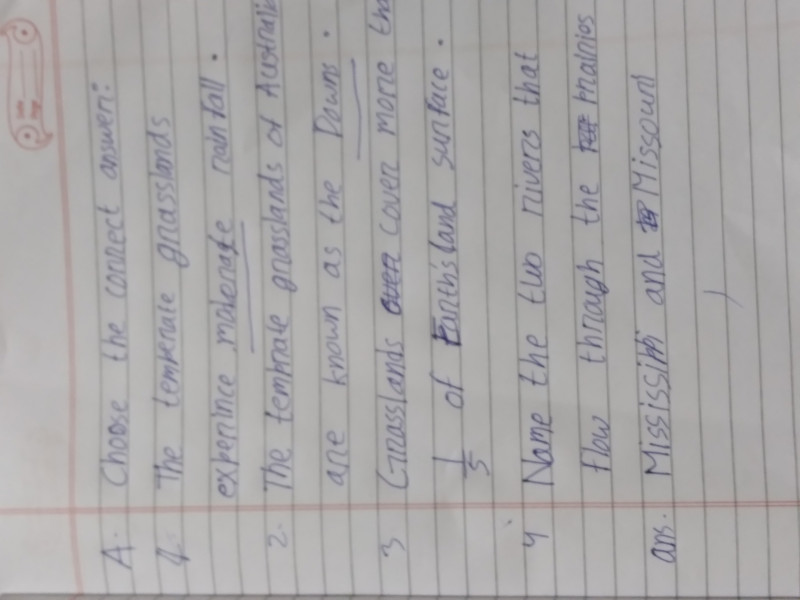 A. Choose the correct answer:
1. The temperate grasslands
experince moderate rainfall.
2. The temprate grasslands of Australia
are known as the Downs.
3 Grasslands cover more tha
1/5 of Earth's land surface.
4 Name the two rivers that
flow through the prairies
ans. Mississippi and Missouri